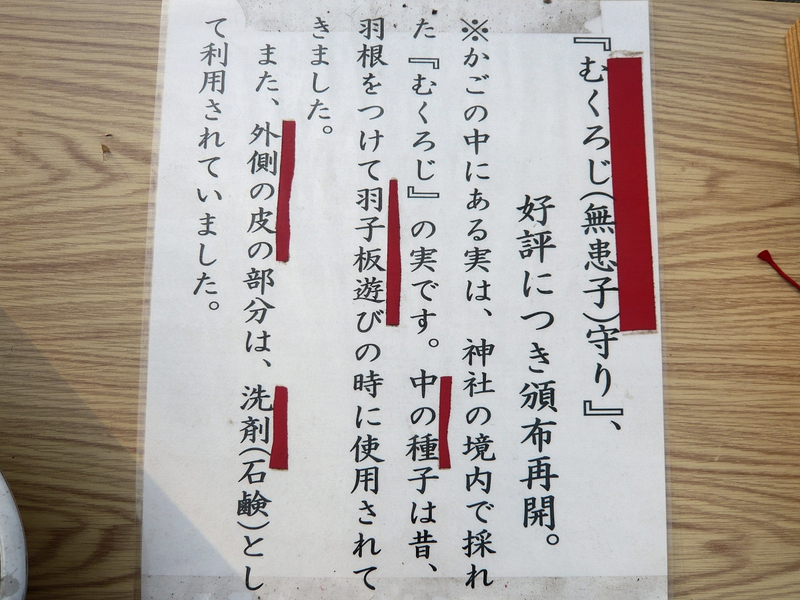 『むくろじ(無患子)守り』、
好評につき頒布再開。
※かごの中にある実は、神社の境内で採れ
た『むくろじ』の実です。中の種子は昔、
羽根をつけて羽子板遊びの時に使用されて
きました。
また、外側の皮の部分は、洗剤(石鹸)とし
て利用されていました。